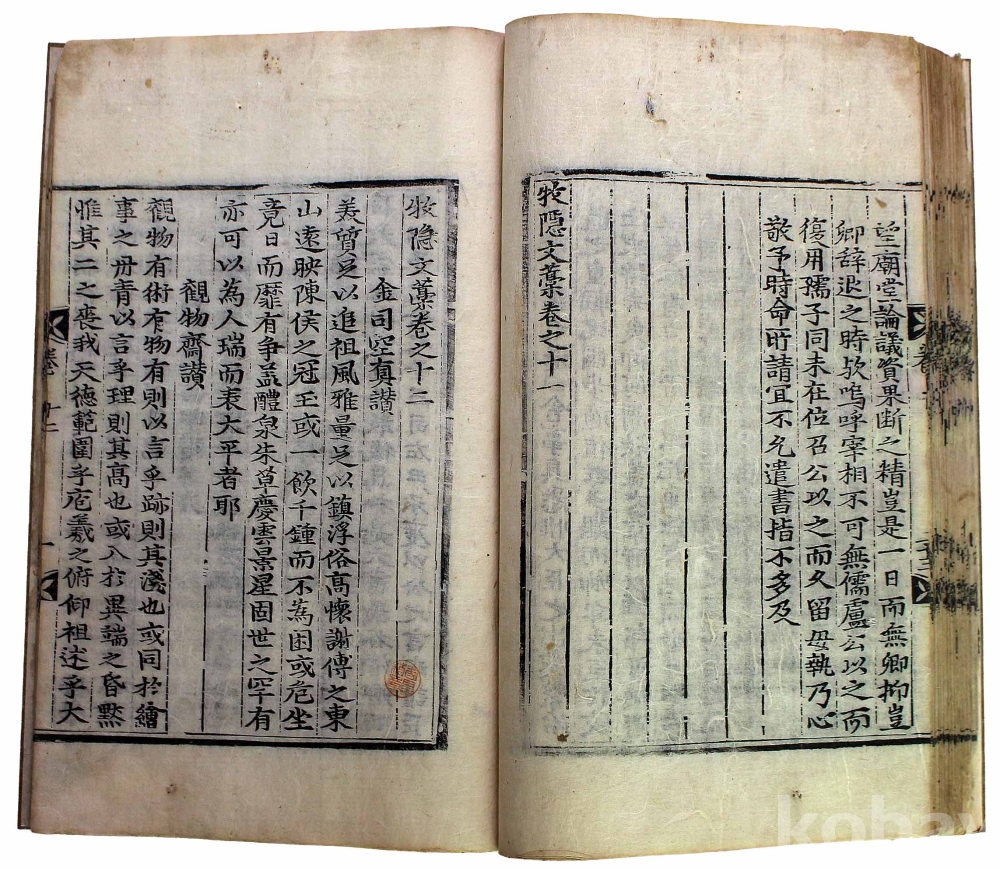 望廟堂論議資果斷之精豈是一日而無卿抑豈
卿辭退之時欤嗚呼宰相不可無儒盧公以之而
復用孺子同未在位召公以之而久留毋執乃心
敬予時命所請宜不允遣書指不多及
牧隱文藁卷之十一
牧隱文藁卷之十二
金司空眞讃
美質足以追祖風雅量足以鎮浮俗高懷謝傅之東
山遠映陳侯之冠玉或一飲千鍾而不為困或危坐
竟日而靡有争盖醴泉朱草慶雲景星固世之罕有
亦可以為人瑞而表大平者耶
觀物齋讃
觀物有術有物有則以言乎跡則其淺也或同於繪
事之丹青以言乎理則其高也或入於異端之昏黙
惟其二之喪我天德範圍乎庖羲之俯仰祖述乎大
卷
十二
一
kobay